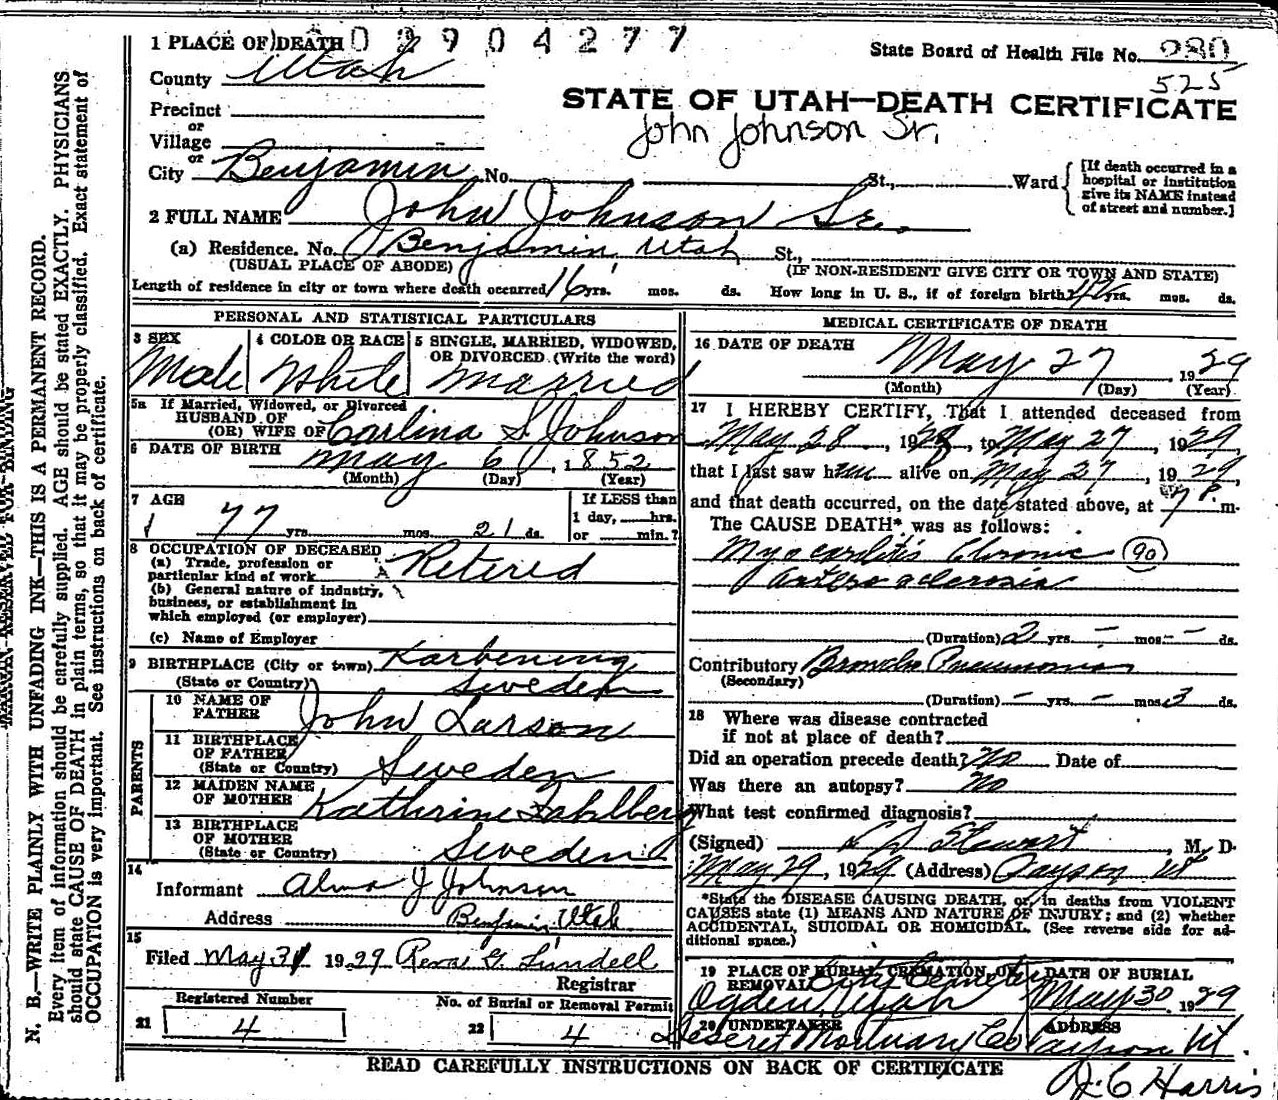 1 PLACE OF DEATH
2904277
State Board of Health File No. 980
525
County Utah
STATE OF UTAH—DEATH CERTIFICATE
Precinct
or
Village
or
John Johnson Sr.
City Benjamin No. St., Ward
[If death occurred in a
hospital or institution
give its NAME instead
of street and number.]
2 FULL NAME John Johnson Sr.
(a) Residence. No. Benjamin, Utah St.,
(USUAL PLACE OF ABODE) (IF NON-RESIDENT GIVE CITY OR TOWN AND STATE)
Length of residence in city or town where death occurred 16 yrs. mos. ds. How long in U. S., if of foreign birth? yrs. mos. ds.
PERSONAL AND STATISTICAL PARTICULARS
3 SEX
Male
4 COLOR OR RACE
White
5 SINGLE, MARRIED, WIDOWED,
OR DIVORCED (Write the word)
Married
5a If Married, Widowed, or Divorced
HUSBAND OF
(OR) WIFE OF Carlina S. Johnson
6 DATE OF BIRTH May 6, 1852
(Month) (Day) (Year)
7 AGE
77 yrs. mos. 21 ds.
If LESS than
1 day, hrs.
or min.?
8 OCCUPATION OF DECEASED
(a) Trade, profession or
particular kind of work Retired
(b) General nature of industry,
business, or establishment in
which employed (or employer)
(c) Name of Employer
9 BIRTHPLACE (City or town) Karbening
(State or Country) Sweden
PARENTS
10 NAME OF
FATHER John Larson
11 BIRTHPLACE
OF FATHER
(State or Country) Sweden
12 MAIDEN NAME
OF MOTHER Kathrine Dahlberg
13 BIRTHPLACE
OF MOTHER
(State or Country) Sweden
14
Informant Alma J Johnson
Address Benjamin, Utah
15
Filed May 31 1929 Reva G. Lundell
Registrar
Registered Number
21 4
No. of Burial or Removal Permit
22 4
MEDICAL CERTIFICATE OF DEATH
16 DATE OF DEATH
May 27, 1929
(Month) (Day) (Year)
17 I HEREBY CERTIFY, That I attended deceased from
May 28, 1928, to May 27, 1929,
that I last saw him alive on May 27, 1929,
and that death occurred, on the date stated above, at 7 P. m.
The CAUSE DEATH* was as follows:
Myocarditis Chronic (90)
arterosclerosis
(Duration) 2 yrs. - mos. - ds.
Contributory Broncho Pneumonia
(Secondary)
(Duration) - yrs. - mos. 3 ds.
18 Where was disease contracted
if not at place of death?
Did an operation precede death? No Date of
Was there an autopsy? No
What test confirmed diagnosis?
(Signed) Stewart, M. D.
May 29, 1929 (Address) Payson Ut
*State the DISEASE CAUSING DEATH, or, in deaths from VIOLENT
CAUSES state (1) MEANS AND NATURE OF INJURY; and (2) whether
ACCIDENTAL, SUICIDAL OR HOMICIDAL. (See reverse side for ad-
ditional space.)
19 PLACE OF BURIAL, CREMATION, OR
REMOVAL City Cemetery
Ogden, Utah
DATE OF BURIAL
May 30 1929
20 UNDERTAKER
Deseret Mortuary Co
ADDRESS
Payson Ut.
READ CAREFULLY INSTRUCTIONS ON BACK OF CERTIFICATE
J. C Harris
MARGIN RESERVED FOR BINDING
N. B.—WRITE PLAINLY WITH UNFADING INK—THIS IS A PERMANENT RECORD.
Every item of information should be carefully supplied. AGE should be stated EXACTLY. PHYSICIANS
should state CAUSE OF DEATH in plain terms, so that it may be properly classified. Exact statement of
OCCUPATION is very important. See instructions on back of certificate.